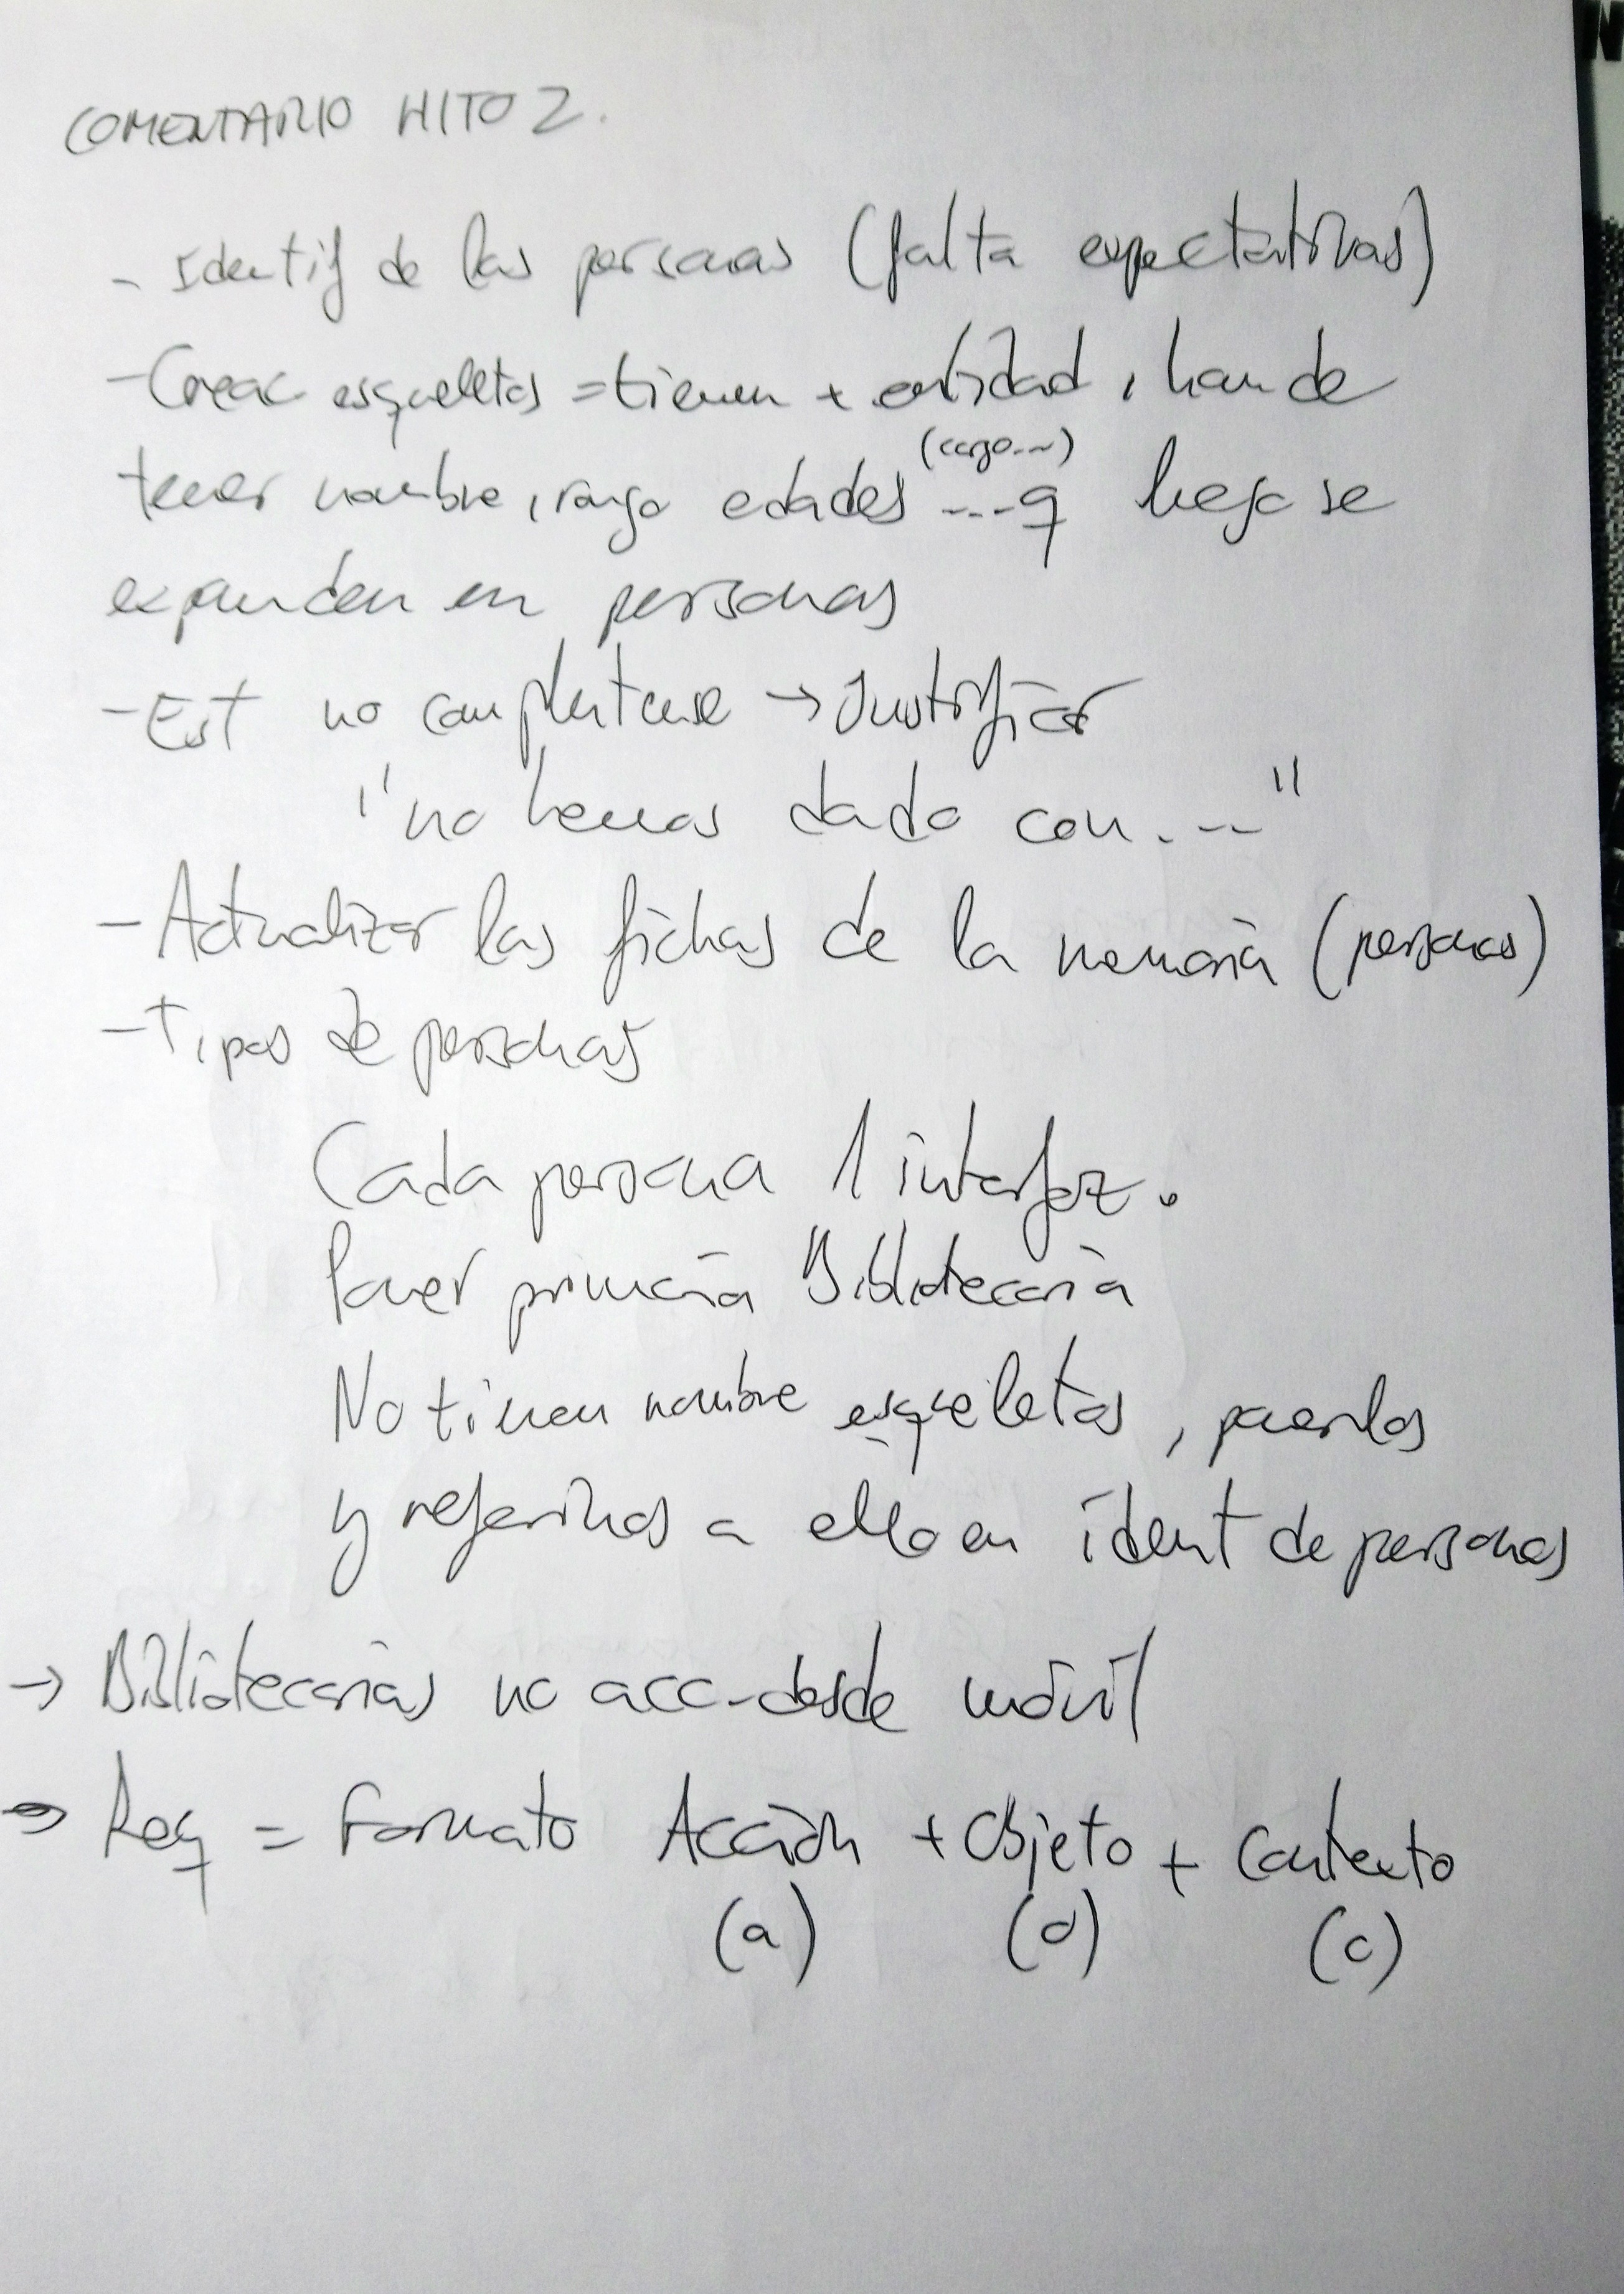 COMENTARIO HITO 2.
- Identif de las personas (falta expectativas)
- Crear esqueletos = tienen + entidad, han de
(cargo...)
tener nombre, rango edades ... q luego se
expanden en personas
- Est no complutense → Justificar
"no hemos dado con..."
- Actualizar las fichas de la memoria (personas)
- Tipos de personas
Cada persona 1 interfaz.
Poner primaria Bibliotecaria
No tienen nombre esqueletos, ponerlos
y referirnos a ello en ident de personas
→ Bibliotecarias no acc-desde móvil
⇒ Req = Formato Acción + Objeto + Contexto
(a) (o) (c)